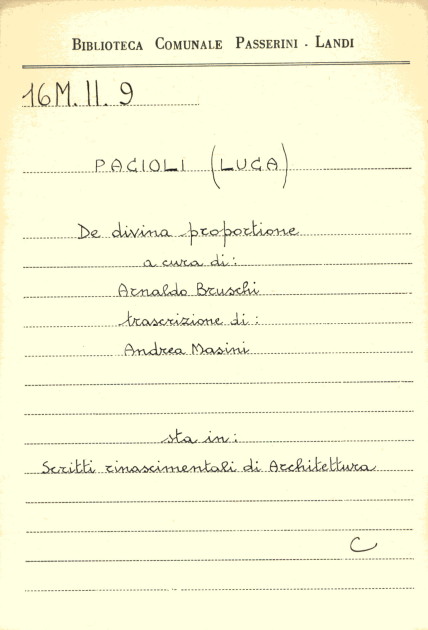 BIBLIOTECA COMUNALE PASSERINI - LANDI
16M. II. 9
PACIOLI (LUCA)
De divina proportione
a cura di:
Arnaldo Bruschi
trascrizione di:
Andrea Masini
sta in:
Scritti rinascimentali di Architettura
C